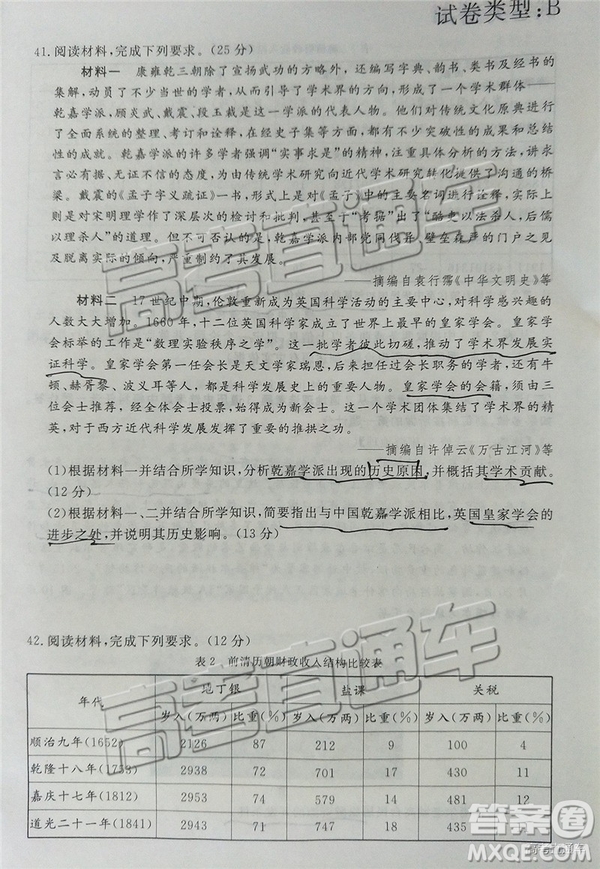 试卷类型:B
41.阅读材料,完成下列要求。(25分)
材料一 康雍乾三朝除了宣扬武功的方略外,还编写字典、韵书、类书及经书的
集解,动员了不少当世的学者,从而引导了学术界的方向,形成了一个学术群体——
乾嘉学派,顾炎武、戴震、段玉裁是这一学派的代表人物。他们对传统文化原典进行
了全面系统的整理、考订和诠释,在经史子集等方面,以求实的精神取得突出的成果和总结
性的成就。乾嘉学派的许多学者强调“实事求是”的精神,注重具体分析的方法,讲求
无征不信的态度,为由传统学术研究向近代学术研究转化提供了沟通的桥
梁。戴震的《孟子字义疏证》一书,形式上是对《孟子》中的主要名词进行诠释,实际上
则是对宋明理学作了深层次的检讨和批判,甚至从中“考据”出了“酷吏以法杀人,后儒
以理杀人”的道理。但不可否认的是,乾嘉学派内部党同伐异、壁垒森严的门户之见
及脱离实际的倾向,严重制约了其发展。
——摘编自袁行霈《中华文明史》等
材料二 17世纪中期,伦敦重新成为英国科学活动的主要中心,对科学感兴趣的
人数大大增加。1660年,十二位英国科学家成立了世界上最早的皇家学会。皇家学
会标举的工作是“数理实验秩序之学”。这一批学者彼此切磋,推动了学术界发展实
证科学。皇家学会第一任会长是天文学家瑞恩。后来担任过会长职务的学者,还有牛
顿、赫胥黎、波义耳等人,都是科学发展史上的重要人物。皇家学会的会籍,须由三
位会士推荐,经全体会士投票,始可成为新会士。这一学术团体集结了学术界的精
英,对于西方近代科学发展发挥了重要的推拱之功。
——摘编自许倬云《万古江河》等
(1)根据材料一并结合所学知识,分析乾嘉学派出现的历史原因,并概括其学术贡献。
(12分)
(2)根据材料一、二并结合所学知识,简要指出与中国乾嘉学派相比,英国皇家学会的
进步之处,并说明其历史影响。(13分)
42.阅读材料,完成下列要求。(12分)
表2 前清历朝财政收入结构比较表
年代 地丁银 盐课 关税
岁入(万两) 比重(%) 岁入(万两) 比重(%) 岁入(万两) 比重(%)
顺治九年(1652) 2126 87 212 9 100 4
乾隆十八年(1753) 2938 72 701 17 430 11
嘉庆十七年(1812) 2953 74 579 14 481 12
道光二十一年(1841) 2943 435
高考直通车
高考直通车
答案圈
MXQE.COM